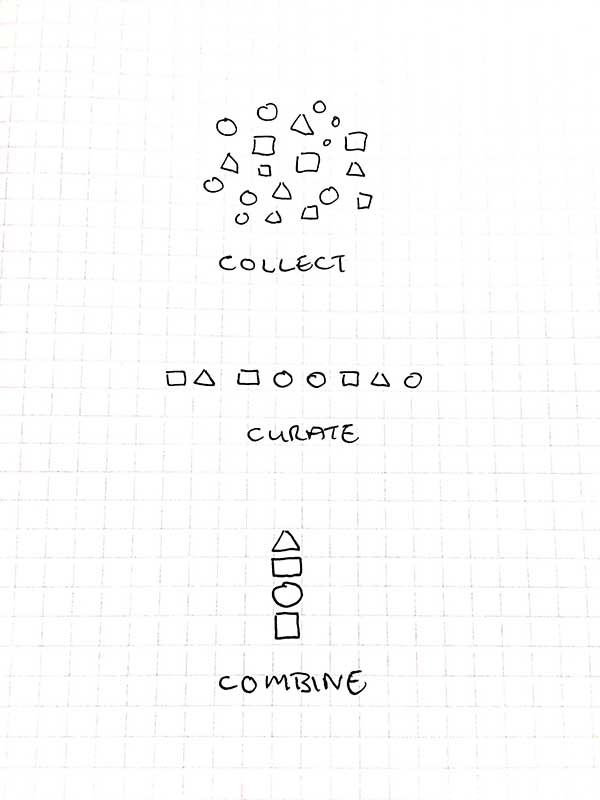 COLLECT
CURATE
COMBINE